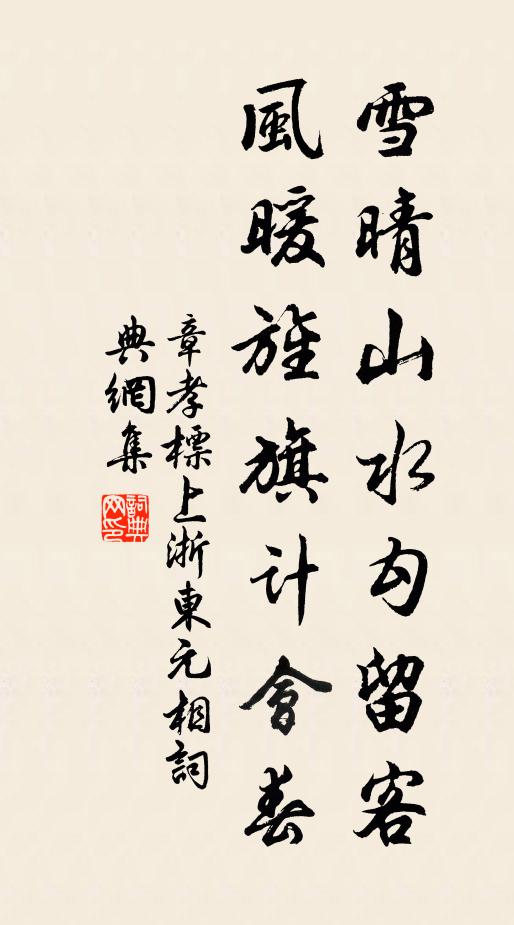 雪晴山水勾留客
風暖旌旗計會春
章孝標上浙東元相詞
典網集
詞典
网印